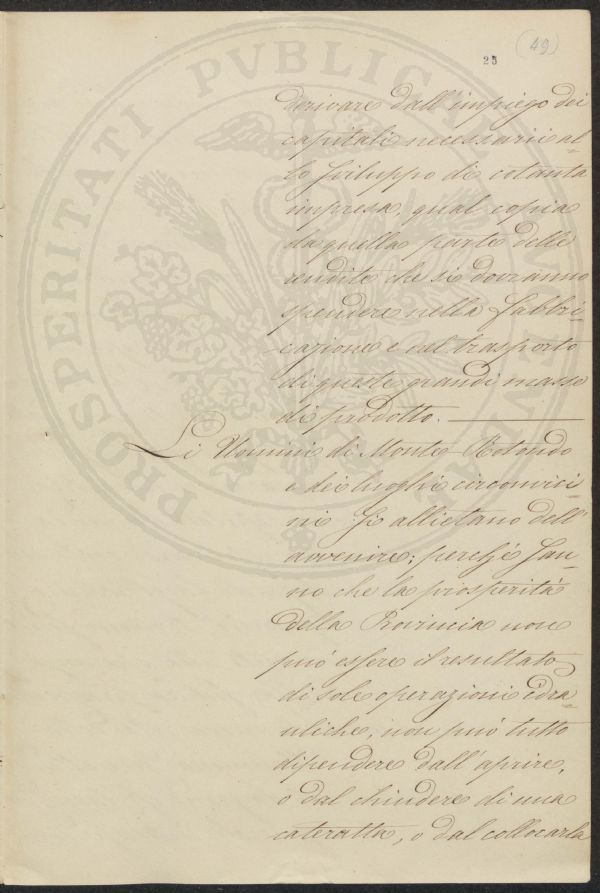 (49)
25
derivare dall'impiego dei
capitali necessarii al=
lo sviluppo di cotanta
impresa, qual copia
da quella parte delle
rendite che si dovranno
spendere nella fabbri=
cazione e nel trasporto
di queste grandi masse
di prodotto.
Li Uomini di Monte Rotondo
e dei luoghi circonvici=
ni si allietano dell'
avvenire; perché san=
no che la prosperità
della Provincia non
può essere il resultato
di sole operazioni idra=
uliche, non può tutto
dipendere dall'aprire,
o dal chiudere di una
cateratta, o dal collocarla
PROSPERITATI PVBLICAE